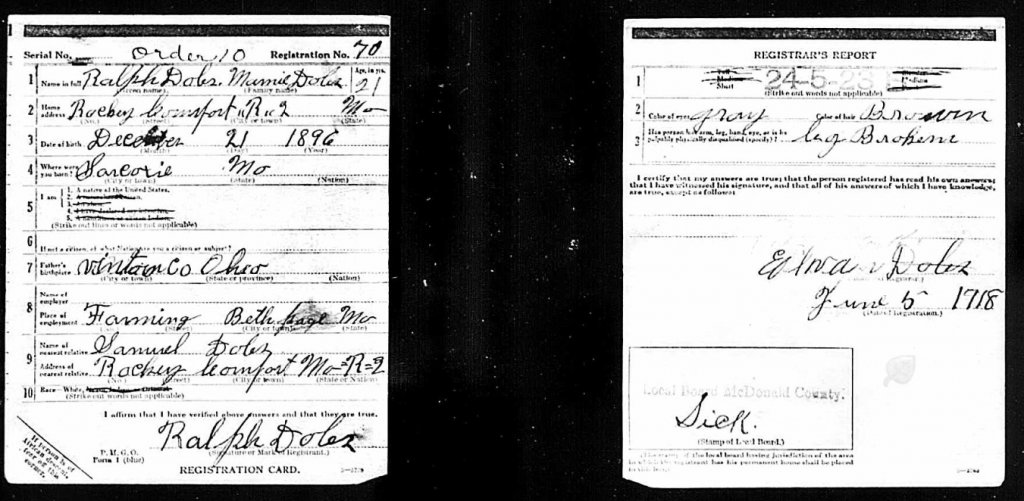 Serial No. Order 10 Registration No. 70
1 Name in full Ralph Dolez. Mimie Dolez Age, in yrs. 21
(Given name) (Family name)
2 Home address Rockey Comfort "R" 2 Mo
(No.) (Street) (City or town) (State)
3 Date of birth December 21 1896
(Month) (Day) (Year)
4 Where were you born? Sarcoxie Mo
(City or town) (State) (Nation)
5 I am 1. A native of the United States.
(Strike out lines or words not applicable)
6 If not a citizen, of what Nation are you a citizen or subject?
7 Father's birthplace Vinton Co Ohio
(City or town) (State or province) (Nation)
8 Name of employer
Place of employment Farming Bethpage Mo
(Street) (City or town) (State)
9 Name of nearest relative Samuel Dolez
Address of nearest relative Rockey Comfort Mo=R=2
(No.) (Street) (City or town) (State or Nation)
10 Race—White,
(Strike out words not applicable)
I affirm that I have verified above answers and that they are true.
Ralph Dolez
(Signature or Mark of Registrant.)
P. M. G. O.
Form 1 (blue)
REGISTRATION CARD.
If person is of African descent, tear off this corner.
REGISTRAR'S REPORT
1 Tall Medium Short 24-5-23 Slender Medium Stout
(Strike out words not applicable)
2 Color of eyes gray Color of hair Brown
3 Has person lost arm, leg, hand, eye, or is he palpably physically disqualified (specify)? leg Broken
I certify that my answers are true; that the person registered has read his own answers;
that I have witnessed his signature, and that all of his answers of which I have knowledge,
are true, except as follows:
Dolez
June 5 1918
(Date of Registration.)
Local Board McDonald County.
Sick.
(Stamp of Local Board.)
(The stamp of the local board having jurisdiction of the area
in which the registrant has his permanent home shall be placed
in this box.)